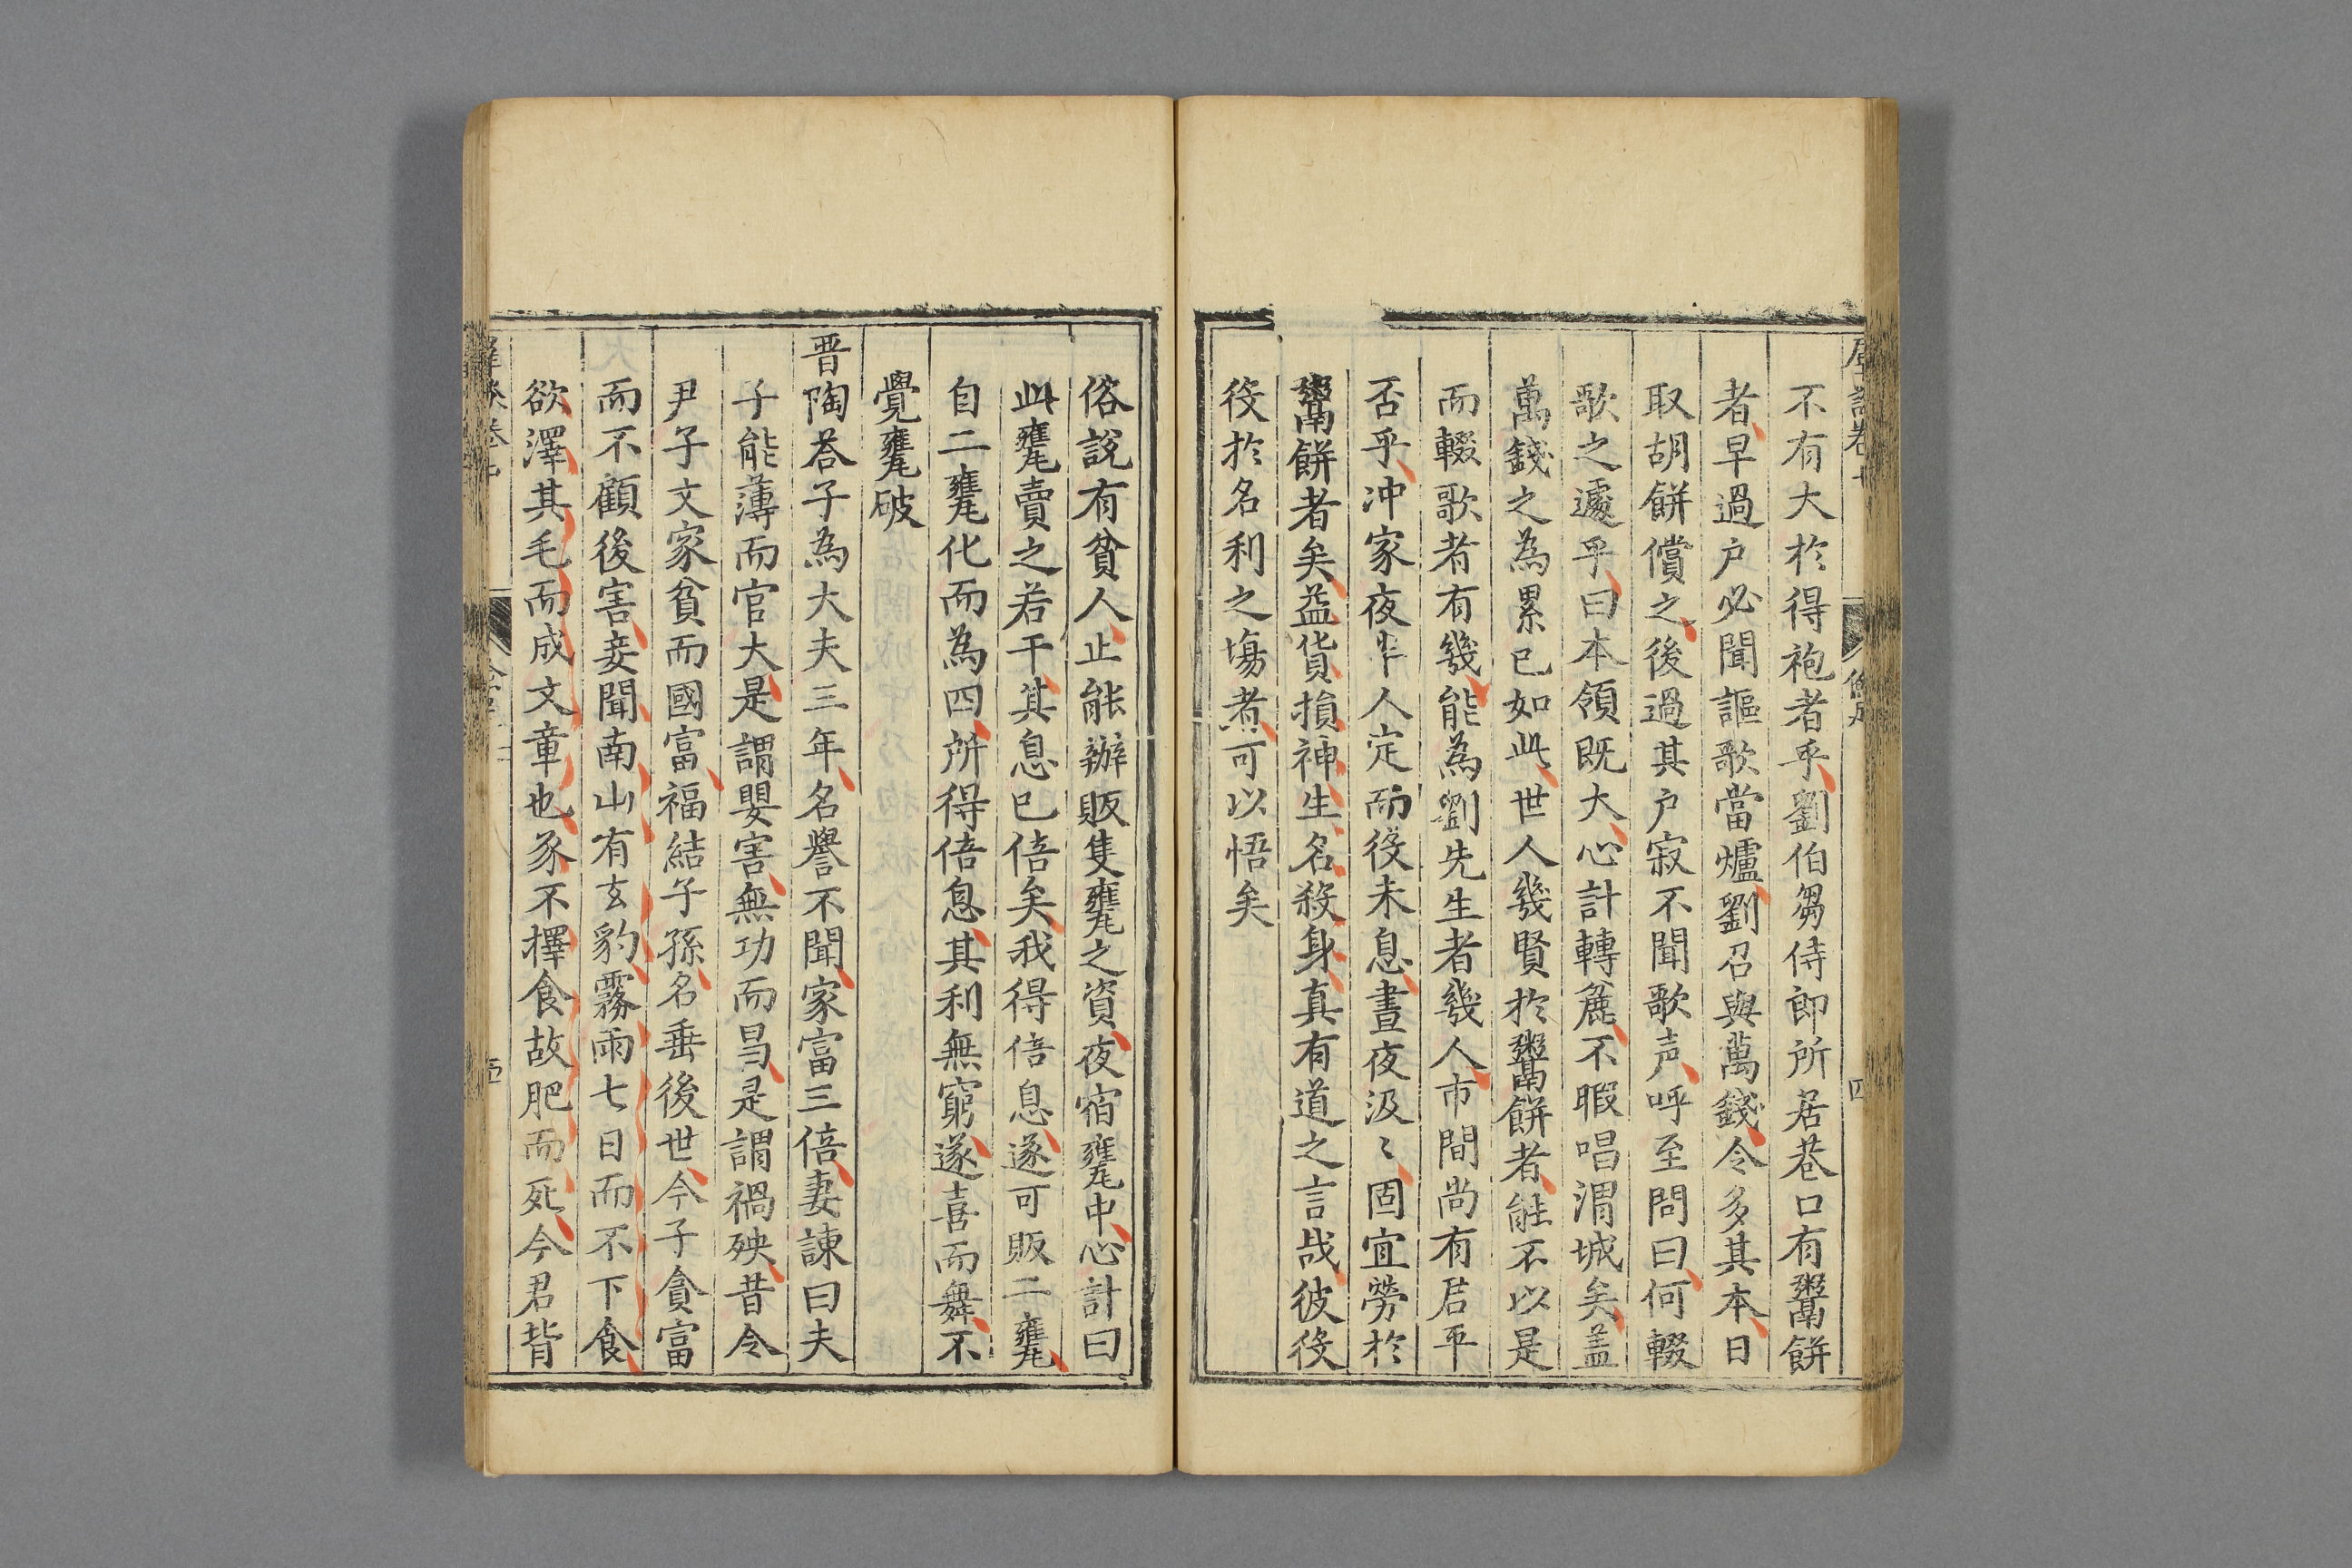 不有大於得袍者乎劉伯芻侍郎所居巷口有鬻餅
者早過户必聞謳歌當爐劉召與萬錢令多其本日
取胡餅償之後過其户寂不聞歌声呼至問曰何輟
歌之遽乎曰本領既大心計轉麄不暇唱渭城矣盖
萬錢之為累已如此世人幾賢於鬻餅者能不以是
而輟歌者有幾能為劉先生者幾人市間尚有君平
否乎冲家夜半人定而役未息晝夜汲〻固宜勞於
鬻餅者矣益貨損神生名殺身真有道之言哉彼役
役於名利之塲者可以悟矣
俗說有貧人止能辦販隻甕之資夜宿甕中心計曰
此甕賣之若干其息已倍矣我得倍息遂可販二甕
自二甕化而為四所得倍息其利無窮遂喜而舞不
覺甕破
晋陶荅子為大夫三年名譽不聞家富三倍妻諫曰夫
子能薄而官大是謂嬰害無功而昌是謂禍殃昔令
尹子文家貧而國富福結子孫名垂後世今子貪富
而不顧後害妾聞南山有玄豹霧雨七日而不下食
欲澤其毛而成文章也豕不擇食故肥而死今君背